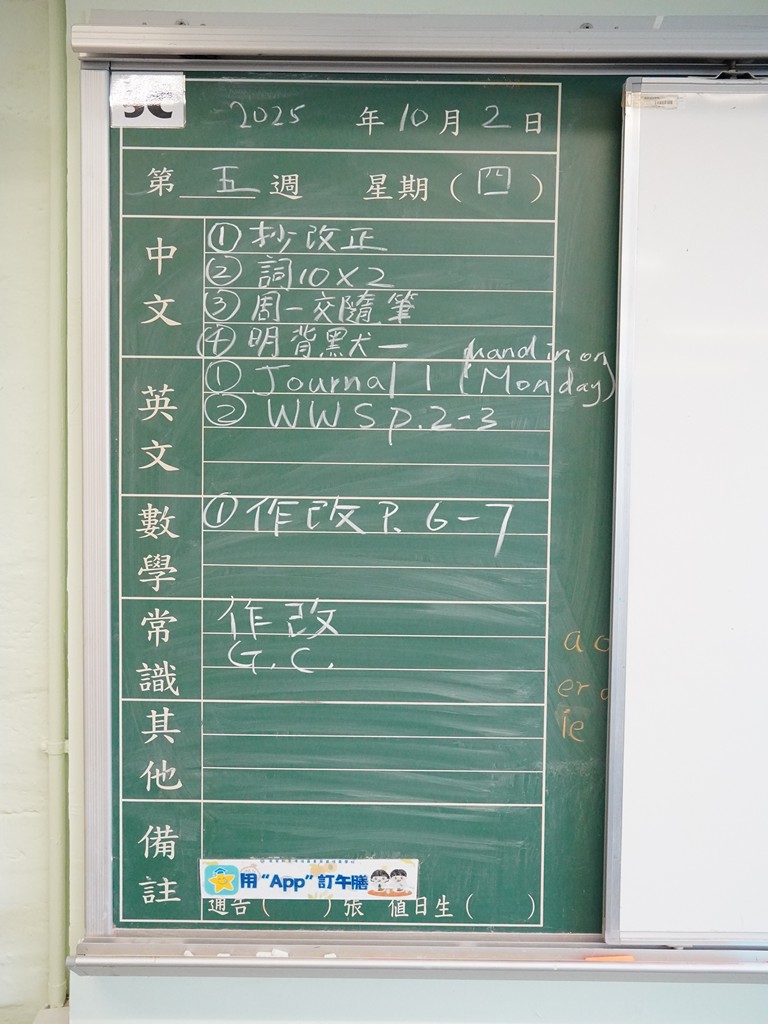 2025 年 10 月 2 日
第 五 週 星期 ( 四 )
中文
① 抄改正
② 詞10×2
③ 周一交隨筆
④ 明背黑犬一
英文
hand in on
① Journal 1 (Monday)
② WWS p.2-3
數學
① 作改 P. 6-7
常識
作改
G.C.
a
er
ie
其他
備註
用“App”訂午膳
通告 ( ) 張 值日生 ( )